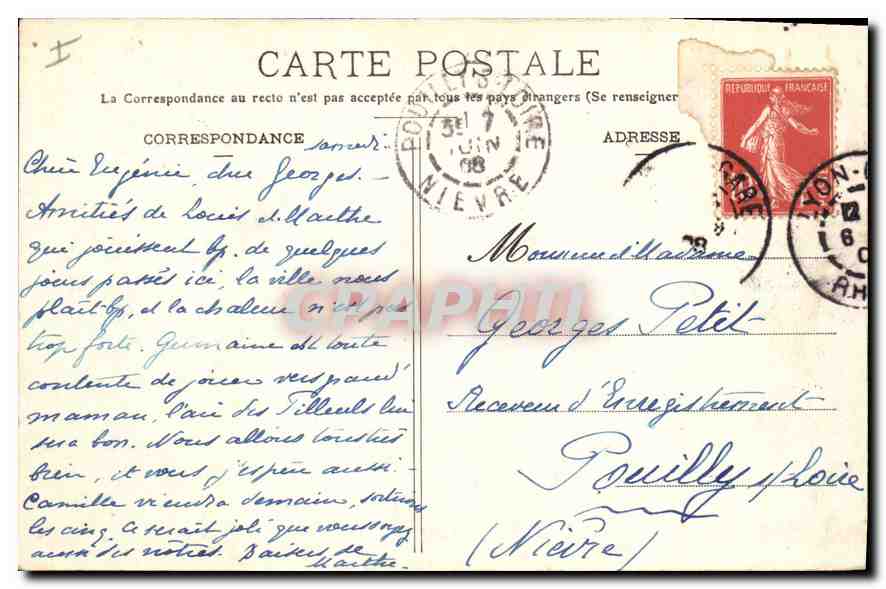 CARTE POSTALE
La Correspondance au recto n'est pas acceptée par tous les pays étrangers (Se renseigner
CORRESPONDANCE
ADRESSE
RÉPUBLIQUE FRANÇAISE
POUILLY-S-LOIRE
7
JUIN
08
NIEVRE
GARE
08
LYON-
12
6
RH
CPAPHIL
samedi.
Chère Eugénie, cher Georges. —
Amitiés de Louis et Marthe
qui jouissent bp. de quelques
jours passés ici, la ville nous
plaît bp, et la chaleur n'est pas
trop forte. Germaine est toute
contente de jouer vers grand'
maman, l'air des Tilleuls lui
sera bon. Nous allons tous très
bien, et vous j'espère aussi. —
Camille viendra demain,
les cinq. Ce serait joli que vous soyez
aussi des nôtres. Baisers de
Marthe.
Monsieur et Madame
Georges Petit
Receveur d'Enregistrement
Pouilly s/Loire
(Nièvre)